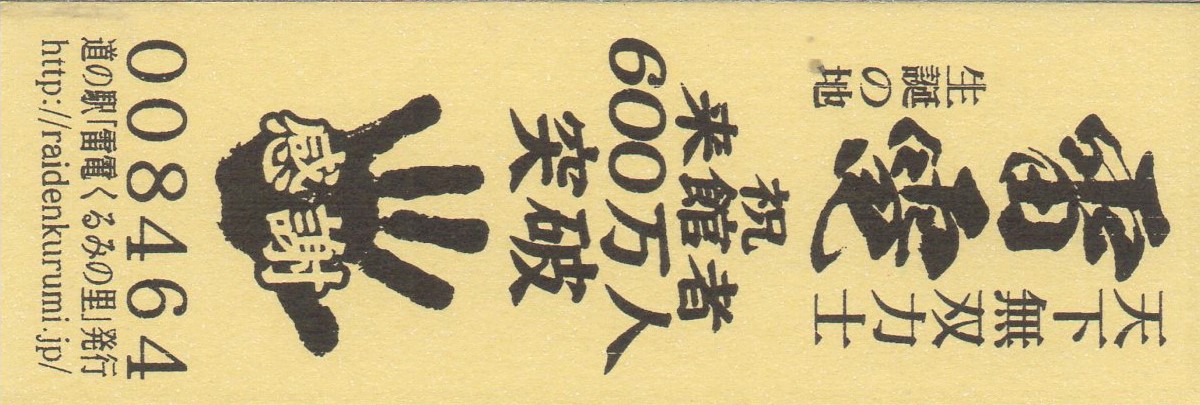 天下無双力士
雷電
生誕の地
祝
来館者
600万人
突破
感謝
008464
道の駅「雷電くるみの里」発行
http://raidenkurumi.jp/